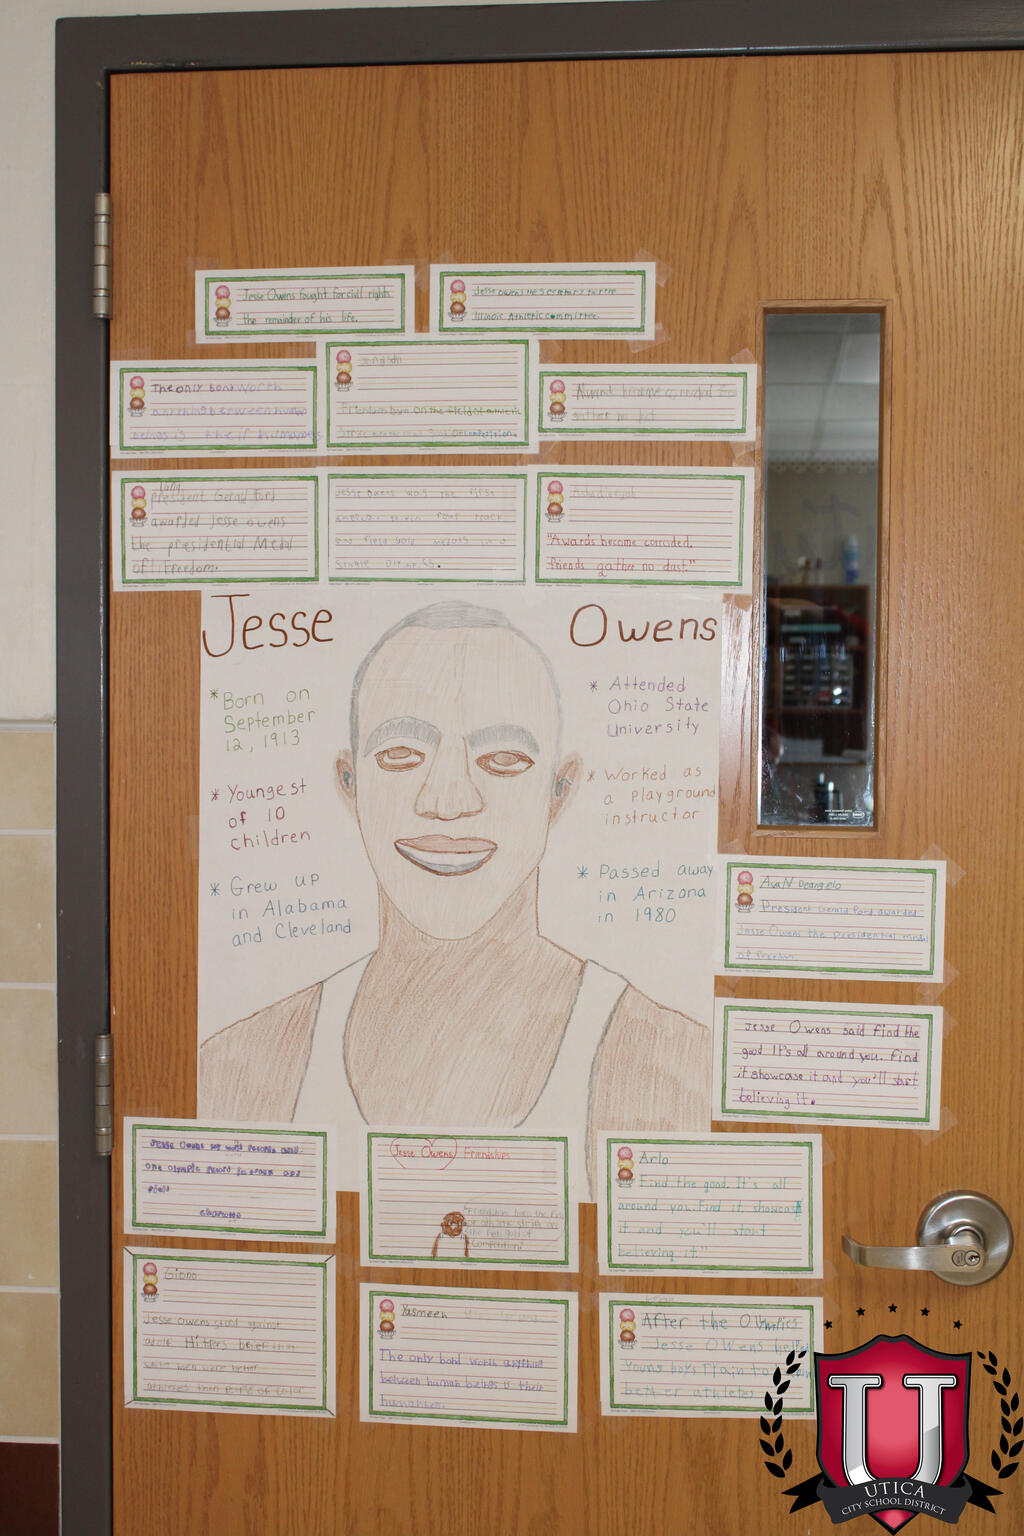 Jesse Owens fought for civil rights
the remainder of his life.
Jesse owens the secretary to the
Illinois Athletic committee.
The only bond worth
anything between human
beings is their humanness
Friendships born on the field of athletic
strive are the real gold of competition.
Awards become corroded friends
gather no dust
president Gerald Ford
awarded Jesse owens
the presidential Medal
of freedom.
Jesse owens was the first
american to win four track
and field gold medals in a
single
"Awards become corroded,
friends gather no dust."
Jesse Owens
* Born on
September
12, 1913
* Youngest
of 10
children
* Grew up
in Alabama
and Cleveland
* Attended
Ohio State
University
* Worked as
a playground
instructor
* Passed away
in Arizona
in 1980
Ava N Deangelo
President Gerald Ford awarded
Jesse Owens the presidential medal
of freedom.
Jesse Owens said find the
good It's all around you. Find
it showcase it and you'll start
believing it.
Jesse Owens set world records and
one olympic record in track and
field
Jesse Owens Friendships
"Friendships born on the field
of athletic strife are
the real gold of
Competition."
Arlo
Find the good. It's all
around you. Find it, showcase
it and you'll start
believing it."
Jesse Owens stand against
adolf Hitlers belief that
white men were better
athletes then people of color
Yasmeen
The only bond worth anything
between human beings is their
humanness.
After the Olympics
Jesse Owens help
young boys train to
better athletes
U
UTICA
CITY SCHOOL DISTRICT